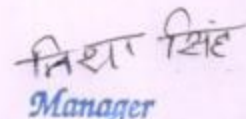 निशा सिंह
Manager